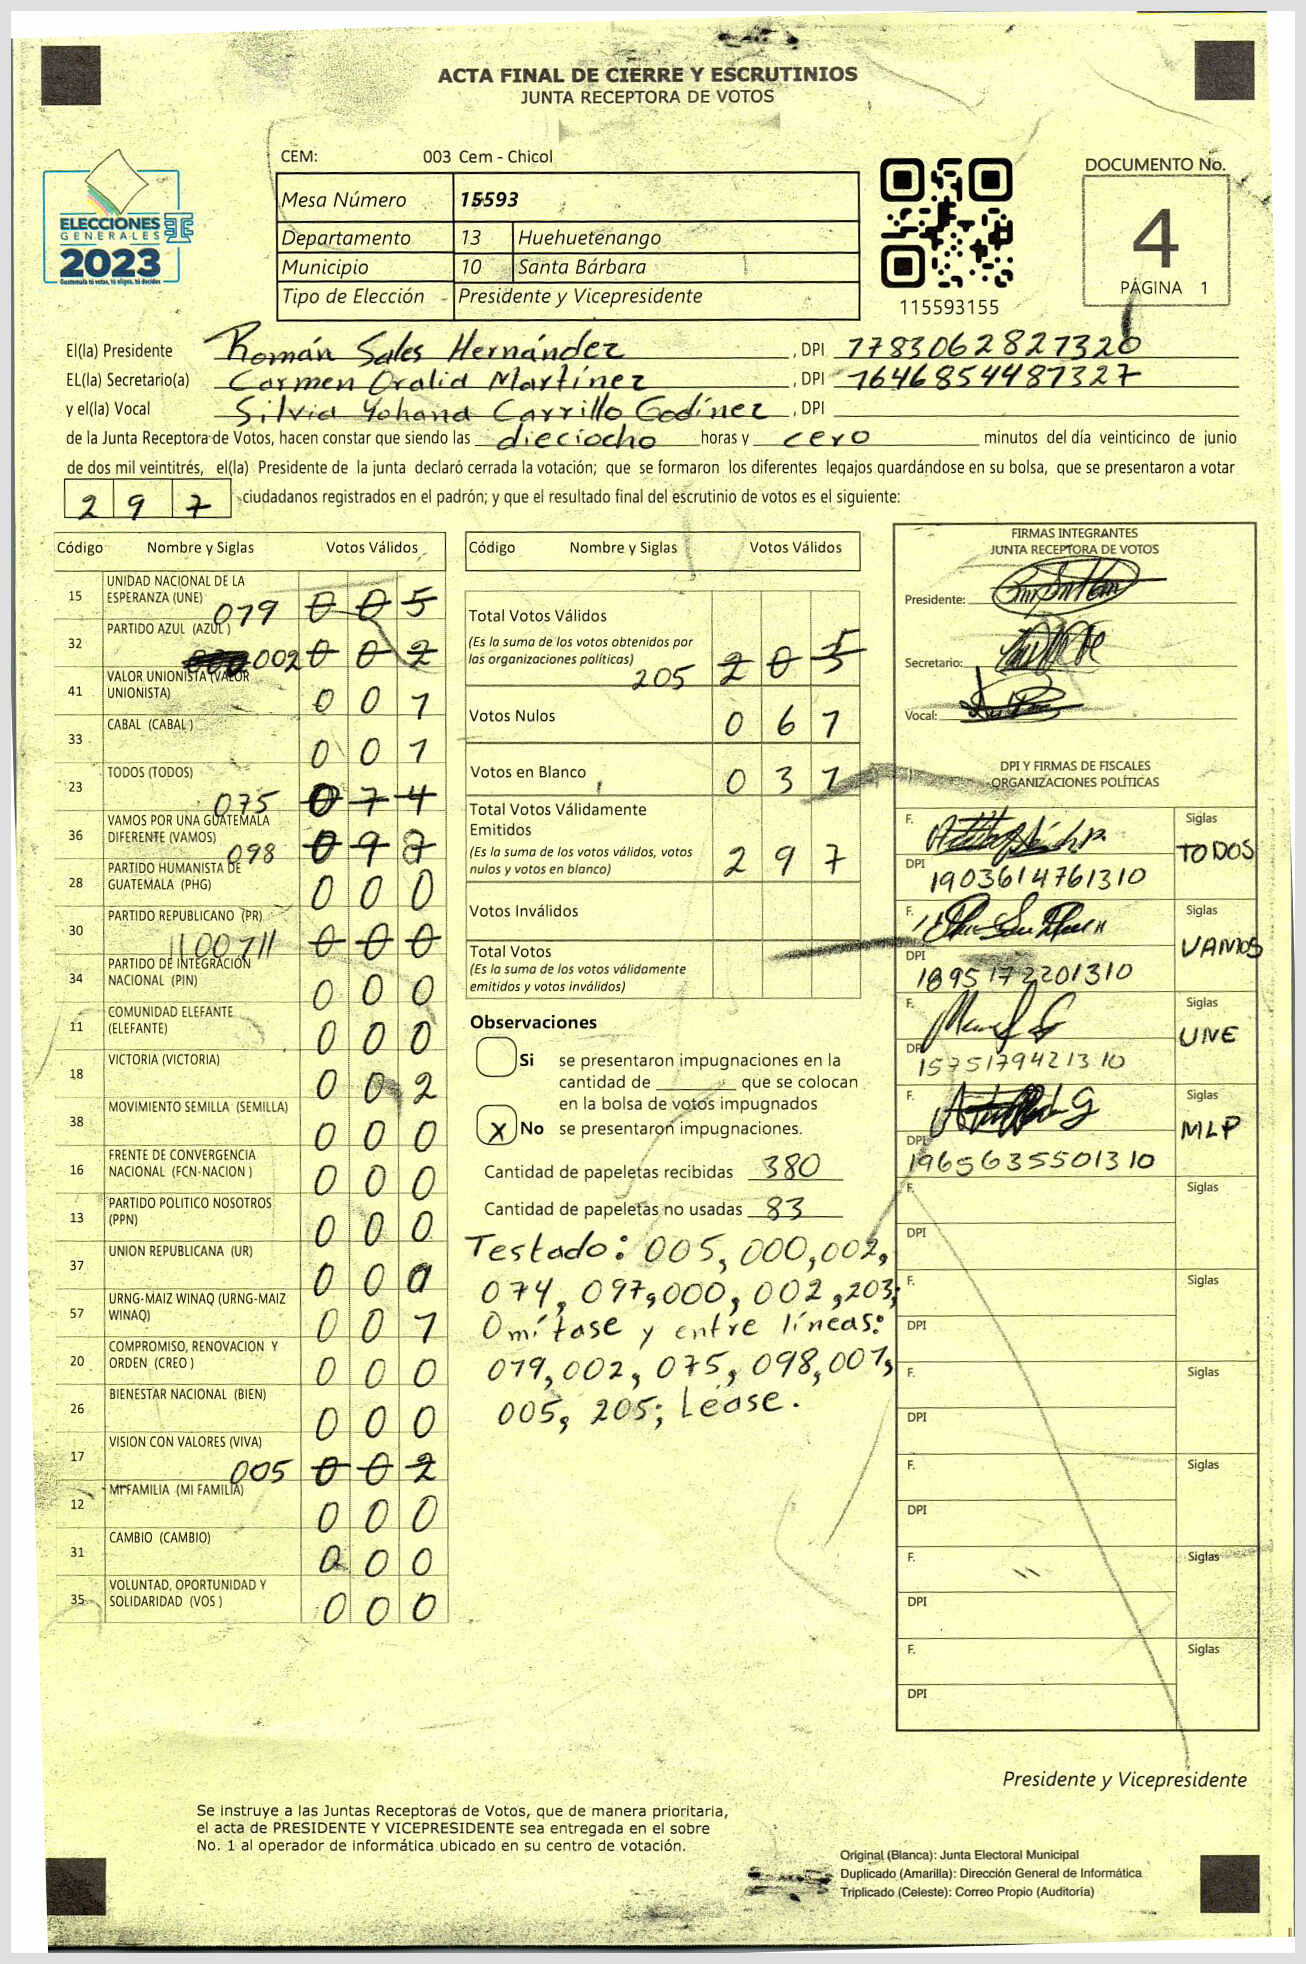 ACTA FINAL DE CIERRE Y ESCRUTINIOS
JUNTA RECEPTORA DE VOTOS
CEM: 003 Cem - Chicol
ELECCIONES
GENERALES
TSE
2023
Guatemala tú votas, tú eliges, tú decides
Mesa Número 15593
Departamento 13 Huehuetenango
Municipio 10 Santa Bárbara
Tipo de Elección Presidente y Vicepresidente
115593155
DOCUMENTO No.
4
PÁGINA 1
El(la) Presidente Román Sales Hernández , DPI 1783062821320
EL(la) Secretario(a) Carmen Oralid Martínez , DPI 1646854481327
y el(la) Vocal Silvia Yohana Carrillo Godínez , DPI
de la Junta Receptora de Votos, hacen constar que siendo las dieciocho horas y cero minutos del día veinticinco de junio
de dos mil veintitrés, el(la) Presidente de la junta declaró cerrada la votación; que se formaron los diferentes legajos guardándose en su bolsa, que se presentaron a votar
2 9 7 ciudadanos registrados en el padrón; y que el resultado final del escrutinio de votos es el siguiente:
Código Nombre y Siglas Votos Válidos
15 UNIDAD NACIONAL DE LA
ESPERANZA (UNE) 079 0 0 5
32 PARTIDO AZUL (AZUL) 002 0 0 2
41 VALOR UNIONISTA (VALOR
UNIONISTA) 0 0 1
33 CABAL (CABAL) 0 0 1
23 TODOS (TODOS) 075 0 7 4
36 VAMOS POR UNA GUATEMALA
DIFERENTE (VAMOS) 098 0 9 7
28 PARTIDO HUMANISTA DE
GUATEMALA (PHG) 0 0 0
30 PARTIDO REPUBLICANO (PR) 0 0 0
34 PARTIDO DE INTEGRACIÓN
NACIONAL (PIN) 0 0 0
11 COMUNIDAD ELEFANTE
(ELEFANTE) 0 0 0
18 VICTORIA (VICTORIA) 0 0 2
38 MOVIMIENTO SEMILLA (SEMILLA) 0 0 0
16 FRENTE DE CONVERGENCIA
NACIONAL (FCN-NACION) 0 0 0
13 PARTIDO POLITICO NOSOTROS
(PPN) 0 0 0
37 UNION REPUBLICANA (UR) 0 0 0
57 URNG-MAIZ WINAQ (URNG-MAIZ
WINAQ) 0 0 1
20 COMPROMISO, RENOVACION Y
ORDEN (CREO) 0 0 0
26 BIENESTAR NACIONAL (BIEN) 0 0 0
17 VISION CON VALORES (VIVA) 005 0 0 2
12 MI FAMILIA (MI FAMILIA) 0 0 0
31 CAMBIO (CAMBIO) 0 0 0
35 VOLUNTAD, OPORTUNIDAD Y
SOLIDARIDAD (VOS) 0 0 0
Código Nombre y Siglas Votos Válidos
Total Votos Válidos
(Es la suma de los votos obtenidos por
las organizaciones políticas) 205 2 0 5
Votos Nulos 0 6 1
Votos en Blanco 0 3 1
Total Votos Válidamente
Emitidos
(Es la suma de los votos válidos, votos
nulos y votos en blanco) 2 9 7
Votos Inválidos
Total Votos
(Es la suma de los votos válidamente
emitidos y votos inválidos)
Observaciones
Si se presentaron impugnaciones en la
cantidad de que se colocan
en la bolsa de votos impugnados
X No se presentaron impugnaciones.
Cantidad de papeletas recibidas 380
Cantidad de papeletas no usadas 83
Testado: 005, 000, 002,
074, 097, 000, 002, 203;
Omítase y entre líneas:
079, 002, 075, 098, 001,
005, 205; Léase.
FIRMAS INTEGRANTES
JUNTA RECEPTORA DE VOTOS
Presidente:
Secretario:
Vocal:
DPI Y FIRMAS DE FISCALES
ORGANIZACIONES POLÍTICAS
F. Siglas
TODOS
DPI 1903614761310
F. Siglas
VAMOS
DPI 1895172201310
F. Siglas
UNE
DPI 1575179421310
F. Siglas
MLP
DPI 1965635501310
F. Siglas
DPI
F. Siglas
DPI
F. Siglas
DPI
F. Siglas
DPI
F. Siglas
DPI
F. Siglas
DPI
Presidente y Vicepresidente
Se instruye a las Juntas Receptoras de Votos, que de manera prioritaria,
el acta de PRESIDENTE Y VICEPRESIDENTE sea entregada en el sobre
No. 1 al operador de informática ubicado en su centro de votación.
Original (Blanca): Junta Electoral Municipal
Duplicado (Amarilla): Dirección General de Informática
Triplicado (Celeste): Correo Propio (Auditoría)